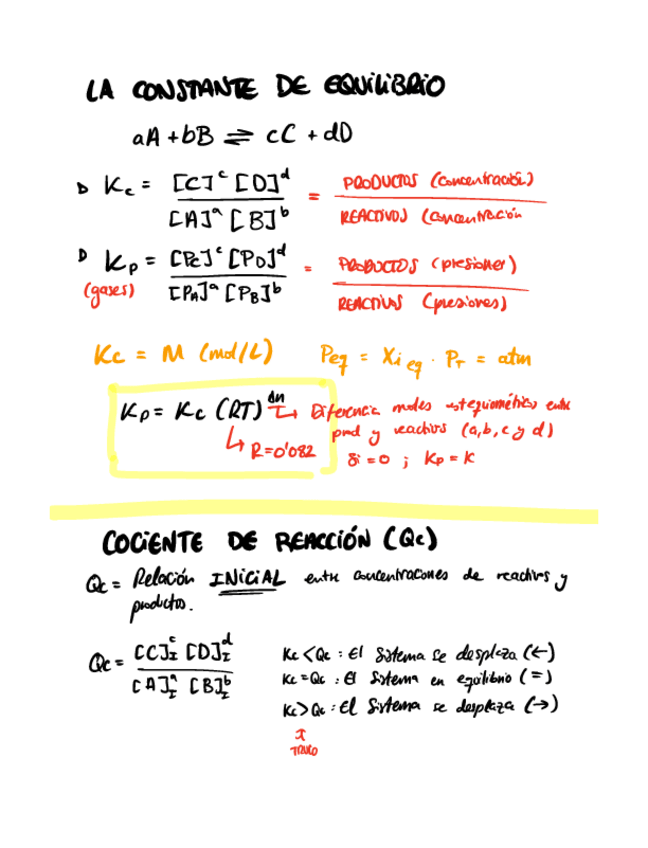 LA CONSTANTE DE EQUILIBRIO
aA + bB ⇌ cC + dD
▷ Kc = [C]^c [D]^d / [A]^a [B]^b = PRODUCTOS (concentración) / REACTIVOS (concentración
▷ Kp = [Pc]^c [PD]^d / [PA]^a [PB]^b = PRODUCTOS (presiones) / REACTIVOS (presiones)
(gases)
Kc = M (mol/L) Peq = Xi eq · PT = atm
Kp = Kc (RT)^Δn → Diferencia moles estequiométricos entre
prod y reactivos (a, b, c y d)
↳ R = 0'082
si = 0 ; Kp = K
COCIENTE DE REACCIÓN (Qc)
Qc = Relación INICIAL entre concentraciones de reactivos y
productos.
Qc = [C]^c_I [D]^d_I / [A]^a_I [B]^b_I
Kc < Qc : El sistema se desplaza (←)
Kc = Qc : El sistema en equilibrio (=)
Kc > Qc : El sistema se desplaza (→)
TRUCO